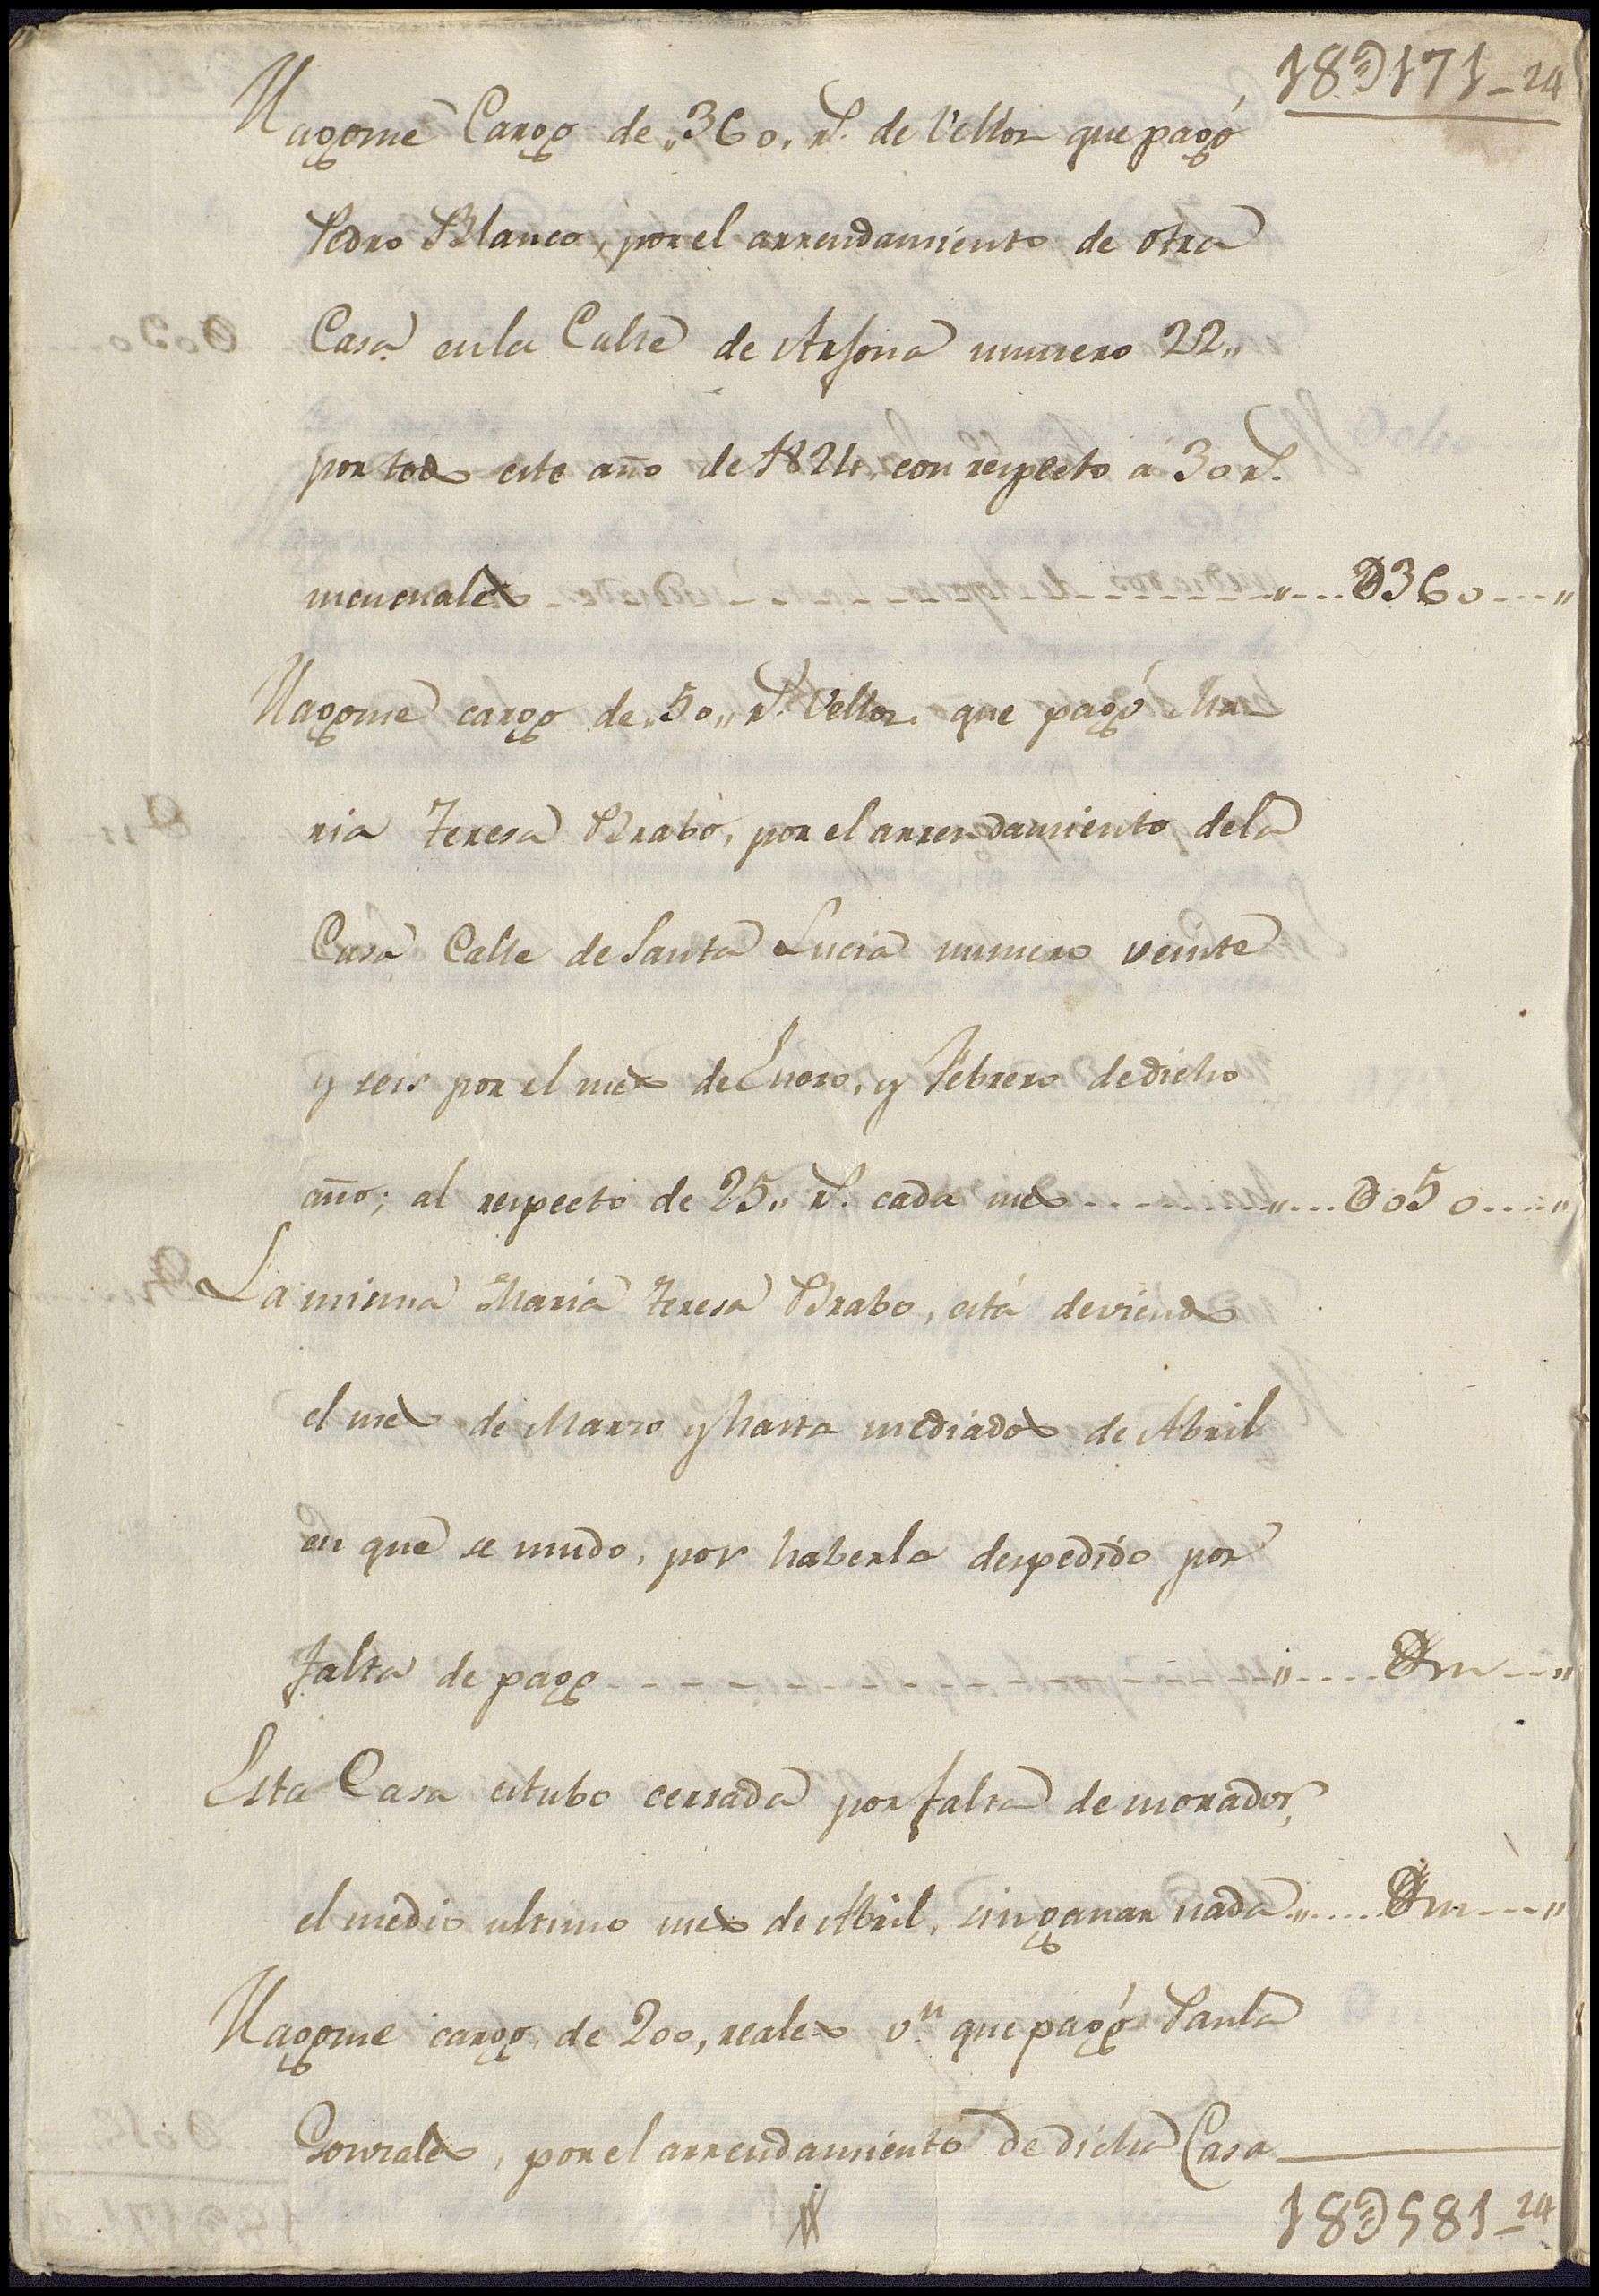 18Ɔ171-24
Hagome Cargo de „360, r.s de Vellon que pagó
Pedro Blanco, por el arrendamiento de otra
Casa en la Calle de Arjona numero 22„
por todo este año de 1824, con respecto á 30 r.s
mensuales „ Ɔ360 „
Hagome cargo de „50„ r.s Vellon que pagó Ma-
ria Teresa Brabo, por el arrendamiento dela
Casa Calle de Santa Lucia numero veinte
y seis por el mes de Enero, y Febrero de dicho
año; al respecto de 25„ r.s cada mes „ Ɔ050 „
La misma Maria Teresa Brabo, está deviendo
el mes de Marzo y hasta mediados de Abril
en que se mudo, por haberla despedido por
falta de pago „ „
Esta Casa estubo cerrada por falta de morador,
el medio ultimo mes de Abril, sin ganar nada „ „
Hagome cargo de 200, reales v.n que pagó Paula
Gonzales, por el arrendamiento de dicha Casa
18Ɔ581-24